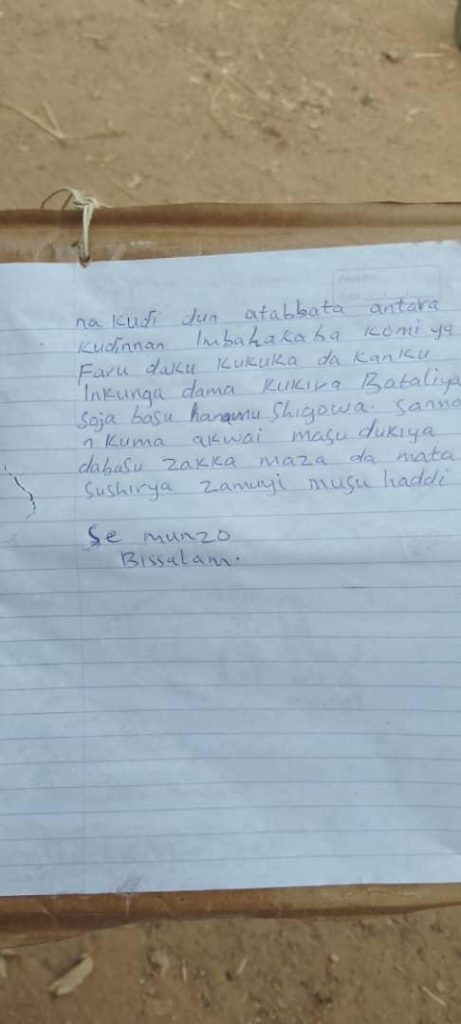 na kudi dun atabbata antara
kudinnan Imbahakaba komi ya
Faru daku kukuka da kanku
Inkunga dama kukira Bataliya
Soja basu hanamu Shigowa. Sanna
n kuma akwai masu dukiya
dabasu zakka maza da mata
sushirya zamuyi musu haddi
Se munzo
Bissalam.